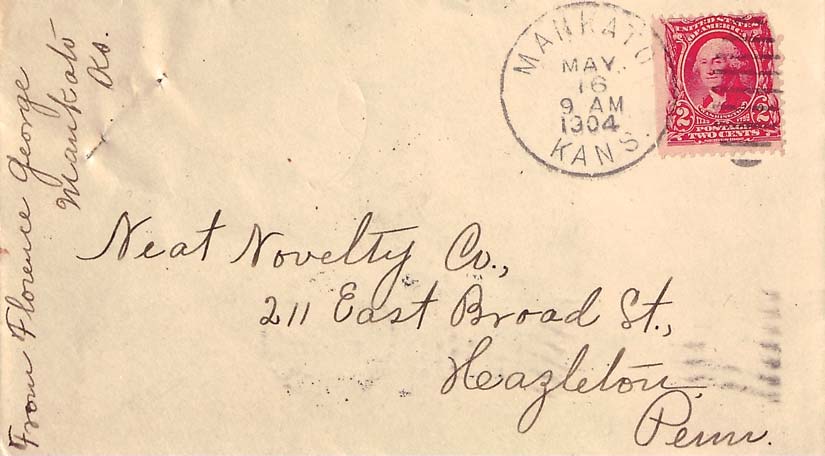 From Florence George
Mankato
Ks.
MANKATO
MAY.
16
9 AM
1904
KANS.
UNITED STATES
OF AMERICA
2 WASHINGTON 2
POSTAGE
TWO CENTS
Neat Novelty Co.,
211 East Broad St.,
Heazleton,
Penn.